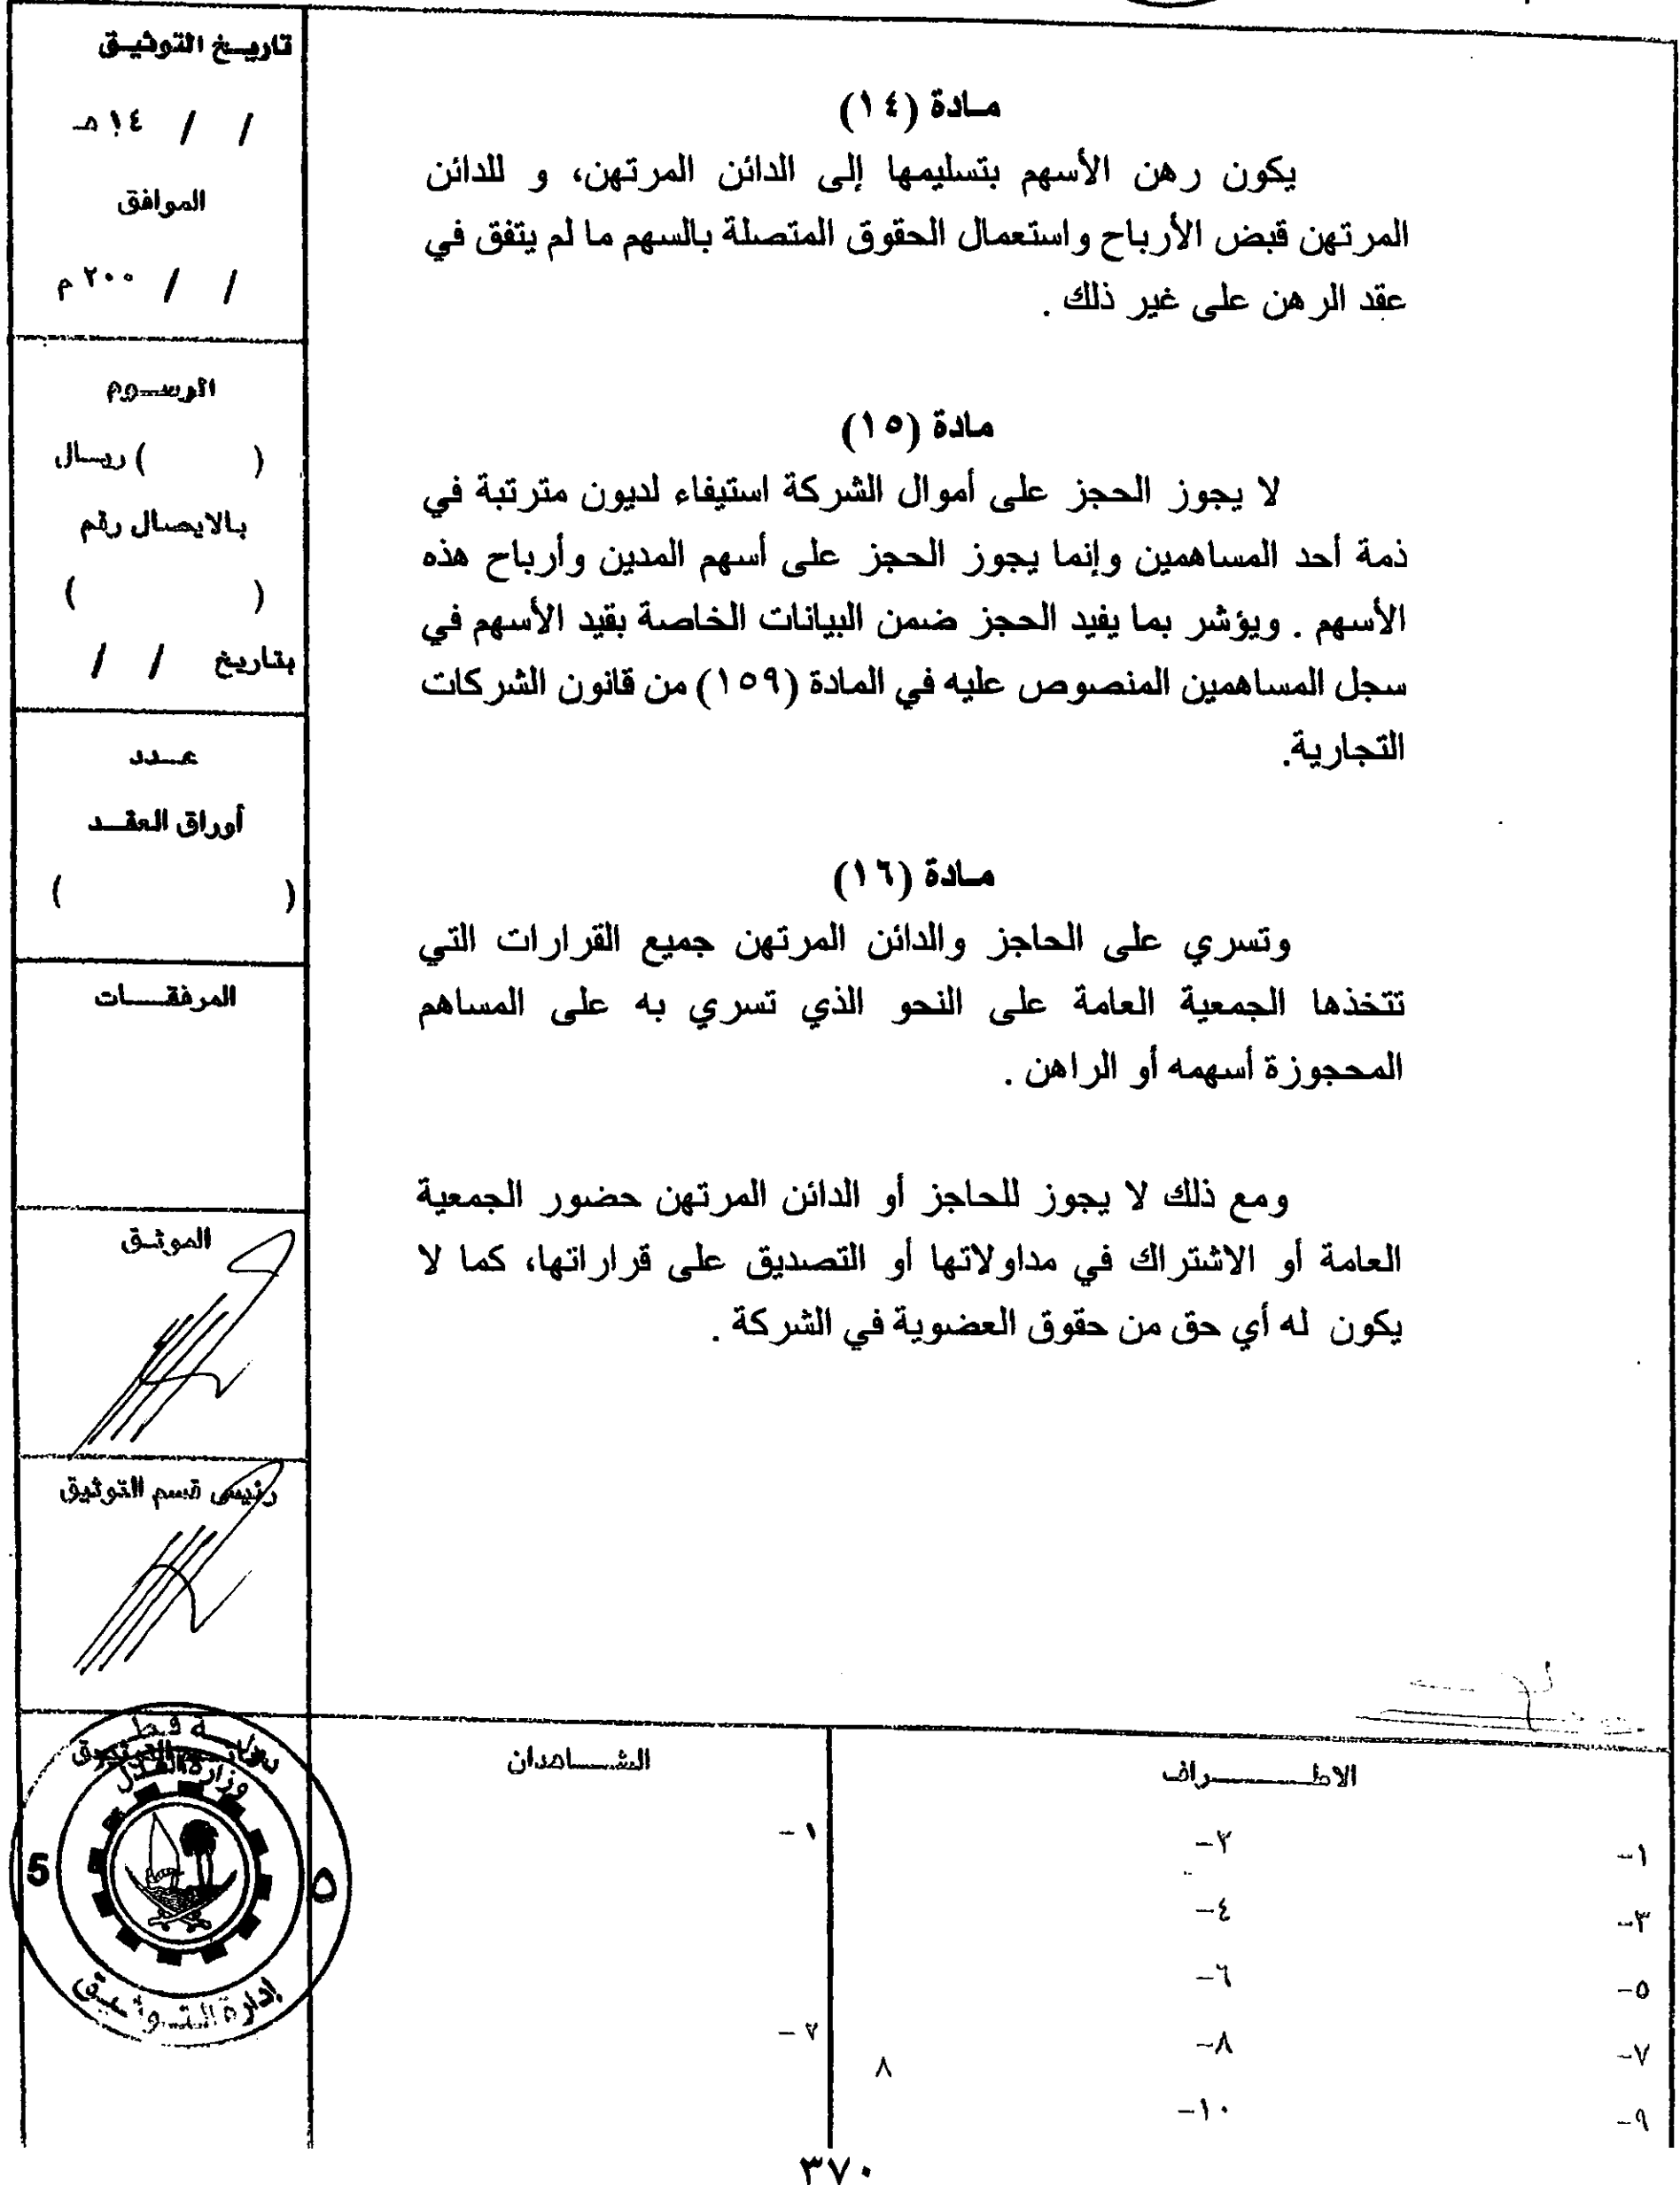 مادة (١٤)
يكون رهن الأسهم بتسليمها إلى الدائن المرتهن، و للدائن
المرتهن قبض الأرباح واستعمال الحقوق المتصلة بالسهم ما لم يتفق في
عقد الرهن على غير ذلك .
مادة (١٥)
لا يجوز الحجز على أموال الشركة استيفاء لديون مترتبة في
ذمة أحد المساهمين وإنما يجوز الحجز على أسهم المدين وأرباح هذه
الأسهم . ويؤشر بما يفيد الحجز ضمن البيانات الخاصة بقيد الأسهم في
سجل المساهمين المنصوص عليه في المادة (١٥٩) من قانون الشركات
التجارية.
مادة (١٦)
وتسري على الحاجز والدائن المرتهن جميع القرارات التي
تتخذها الجمعية العامة على النحو الذي تسري به على المساهم
المحجوزة أسهمه أو الراهن .
ومع ذلك لا يجوز للحاجز أو الدائن المرتهن حضور الجمعية
العامة أو الاشتراك في مداولاتها أو التصديق على قراراتها، كما لا
يكون له أي حق من حقوق العضوية في الشركة .
تاريخ التوثيق
/ / ١٤هـ
الموافق
/ / ٢٠٠ م
الرسوم
( ) ريال
بالايصال رقم
( )
بتاريخ / /
عدد
أوراق العقد
( )
المرفقات
الموثق
رئيس قسم التوثيق
الاطراف
١- ٢-
٣- ٤-
٥- ٦-
٧- ٨-
٩- ١٠-
الشاهدان
١ -
٢ -
دولة قطر
وزارة العدل
5 ٥
إدارة التوثيق
٨
٣٧٠